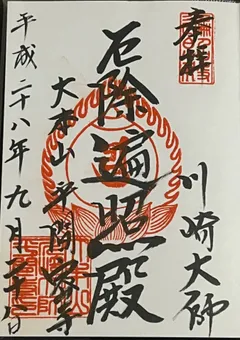 奉拝
川崎大師
厄除遍照殿
大本山平間寺
平成二十八年九月二十八日